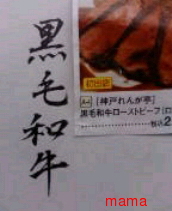 黒毛和牛
初回袋
[神戸れんが亭]
黒毛和牛ローストビーフ
税込2
mama